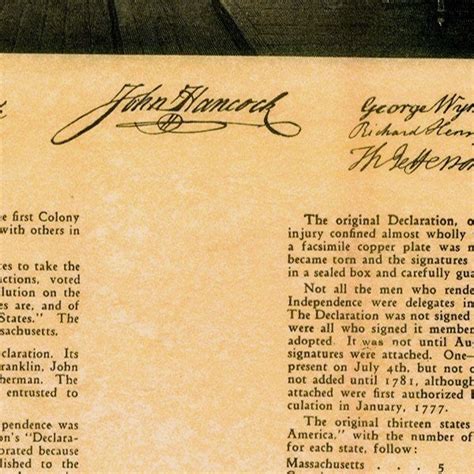 John Hancock
George Wy
Richard Hen
Th Jefferson
e first Colony
with others in
es to take the
ctions, voted
lution on the
es are, and of
States." The
sachusetts.
claration. Its
ranklin, John
herman. The
entrusted to
ependence was
on's "Declara-
orated because
lished to the
The original Declaration, o
injury confined almost wholly
a facsimile copper plate was m
became torn and the signatures
in a sealed box and carefully gua
Not all the men who rende
Independence were delegates i
The Declaration was not signed
were all who signed it member
adopted. It was not until Au
signatures were attached. One—
present on July 4th, but not
not added until 1781, althoug
attached were first authorized
culation in January, 1777.
The original thirteen states
America," with the number of
for each state, follow:
Massachusetts . 5